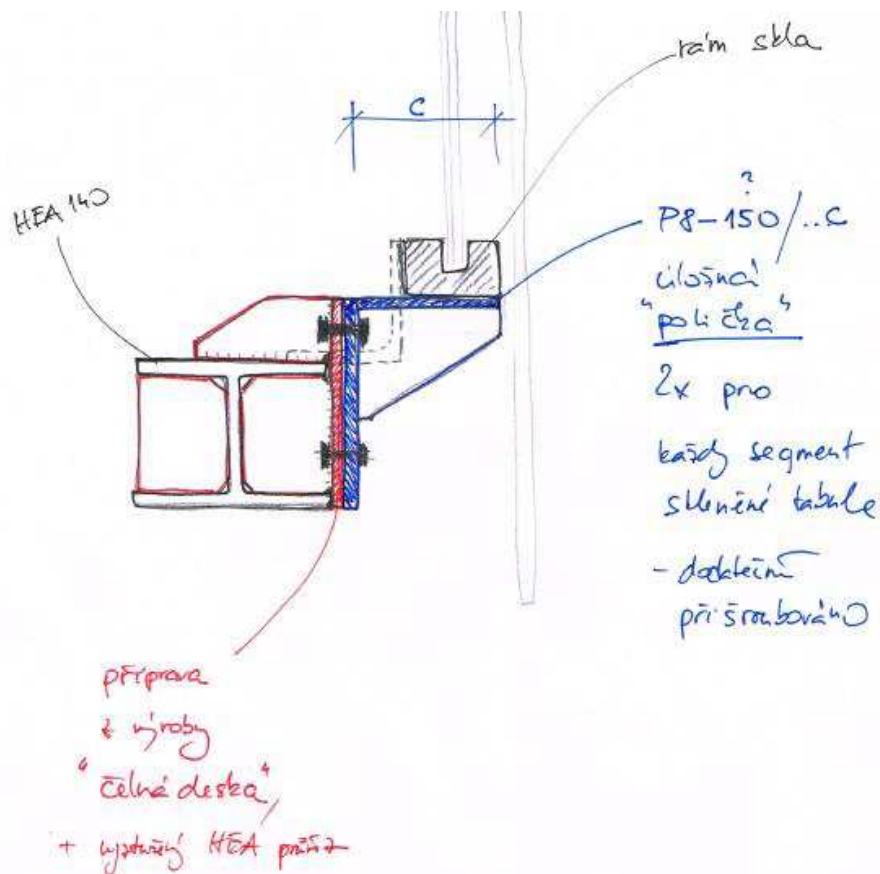 rám skla
C
HEA 140
?
P8-150/..C
úložná
"polička"
2x pro
každý segment
skleněné tabule
- dodatečně
přišroubováno
příprava
z výroby
"čelná deska"
+ vyztužený HEA průřez